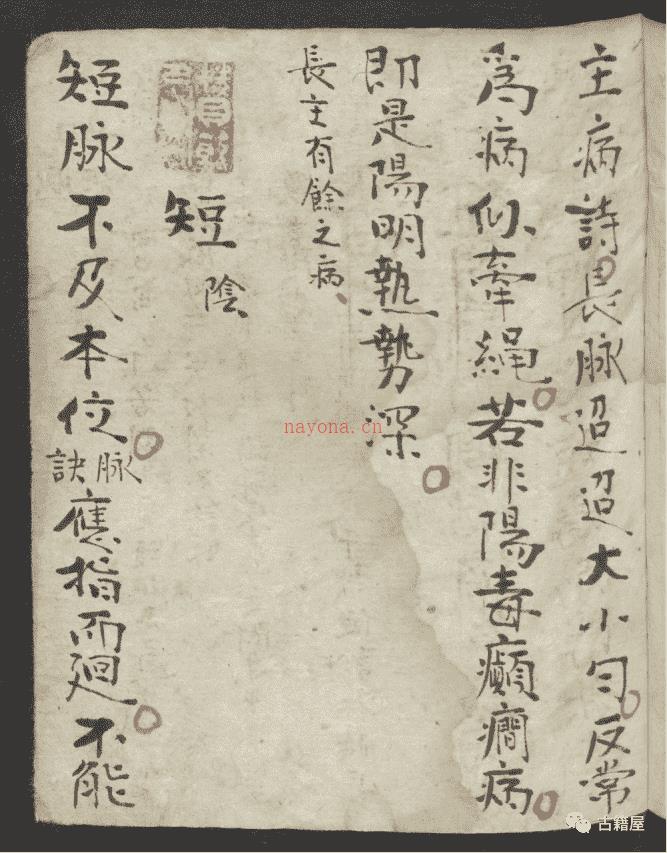 主病詩長脉迢迢大小勻反常
爲病似牽繩若非陽毒癲癇病
即是陽明熱勢深
長主有餘之病
短 陰
短脉不及本位脉訣應指而迴不能
nayona.cn
古籍屋